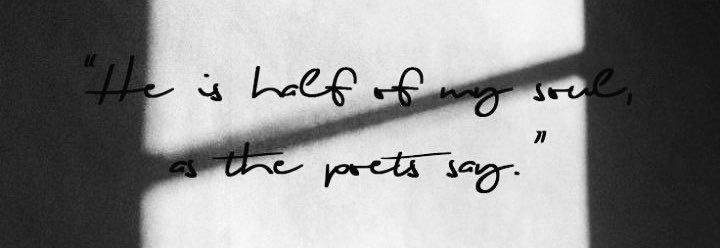 "He is half of my soul,
as the poets say."